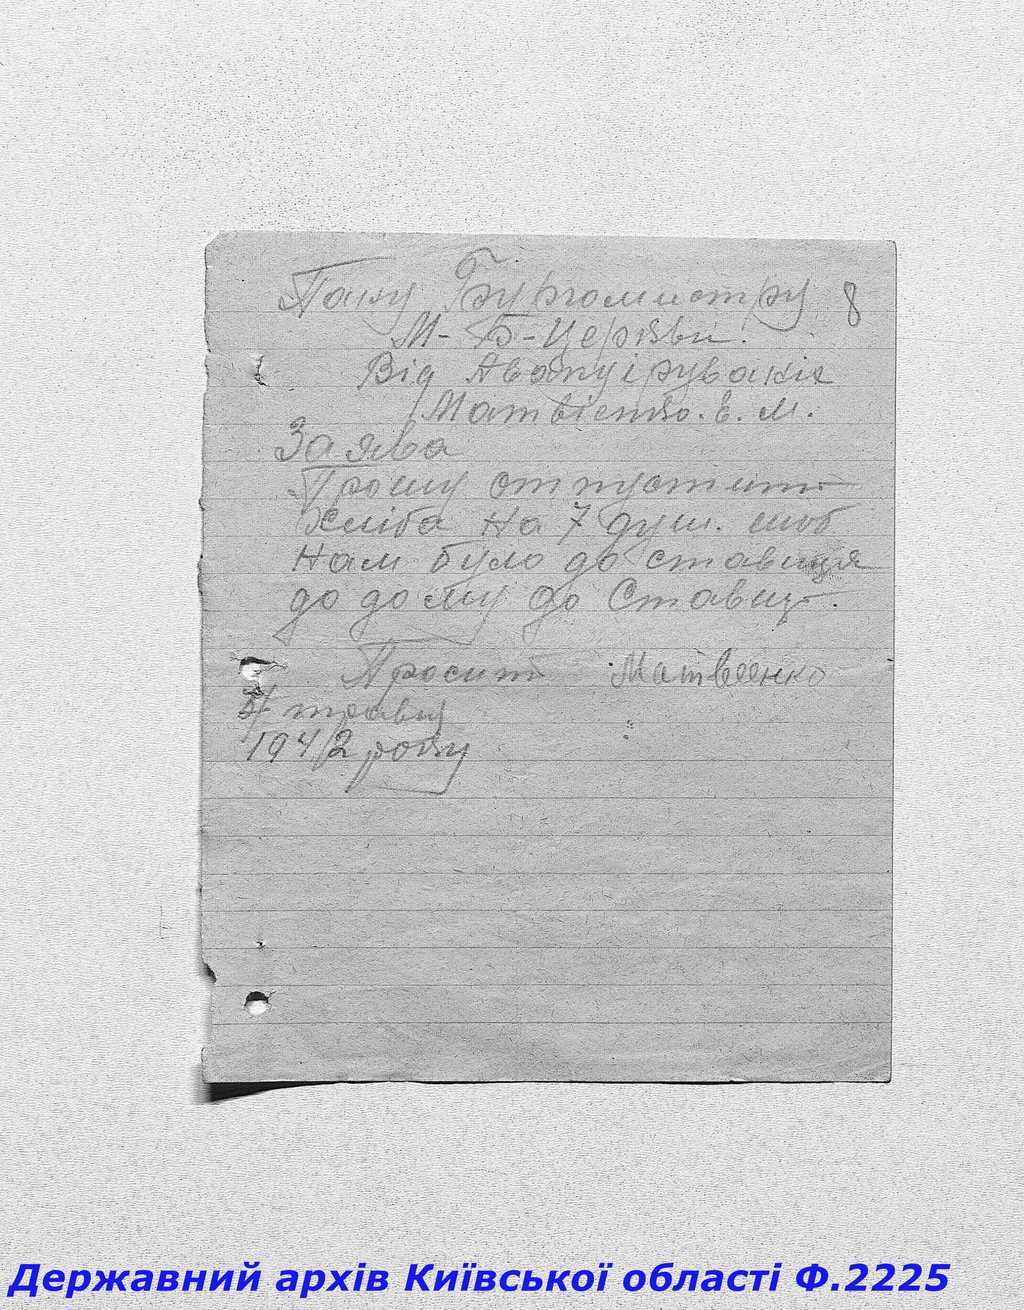 Пану Бургомистру 8
М-Б-Церкви.
Від
Матвієнко. Е. М.
Заява
Прошу отпустить
Хліба на 7 душ. шоб
Нам було до ставища
до дому до Ставищ.
Просит Матвеенко
травня
1942 року
Державний архів Київської області Ф.2225